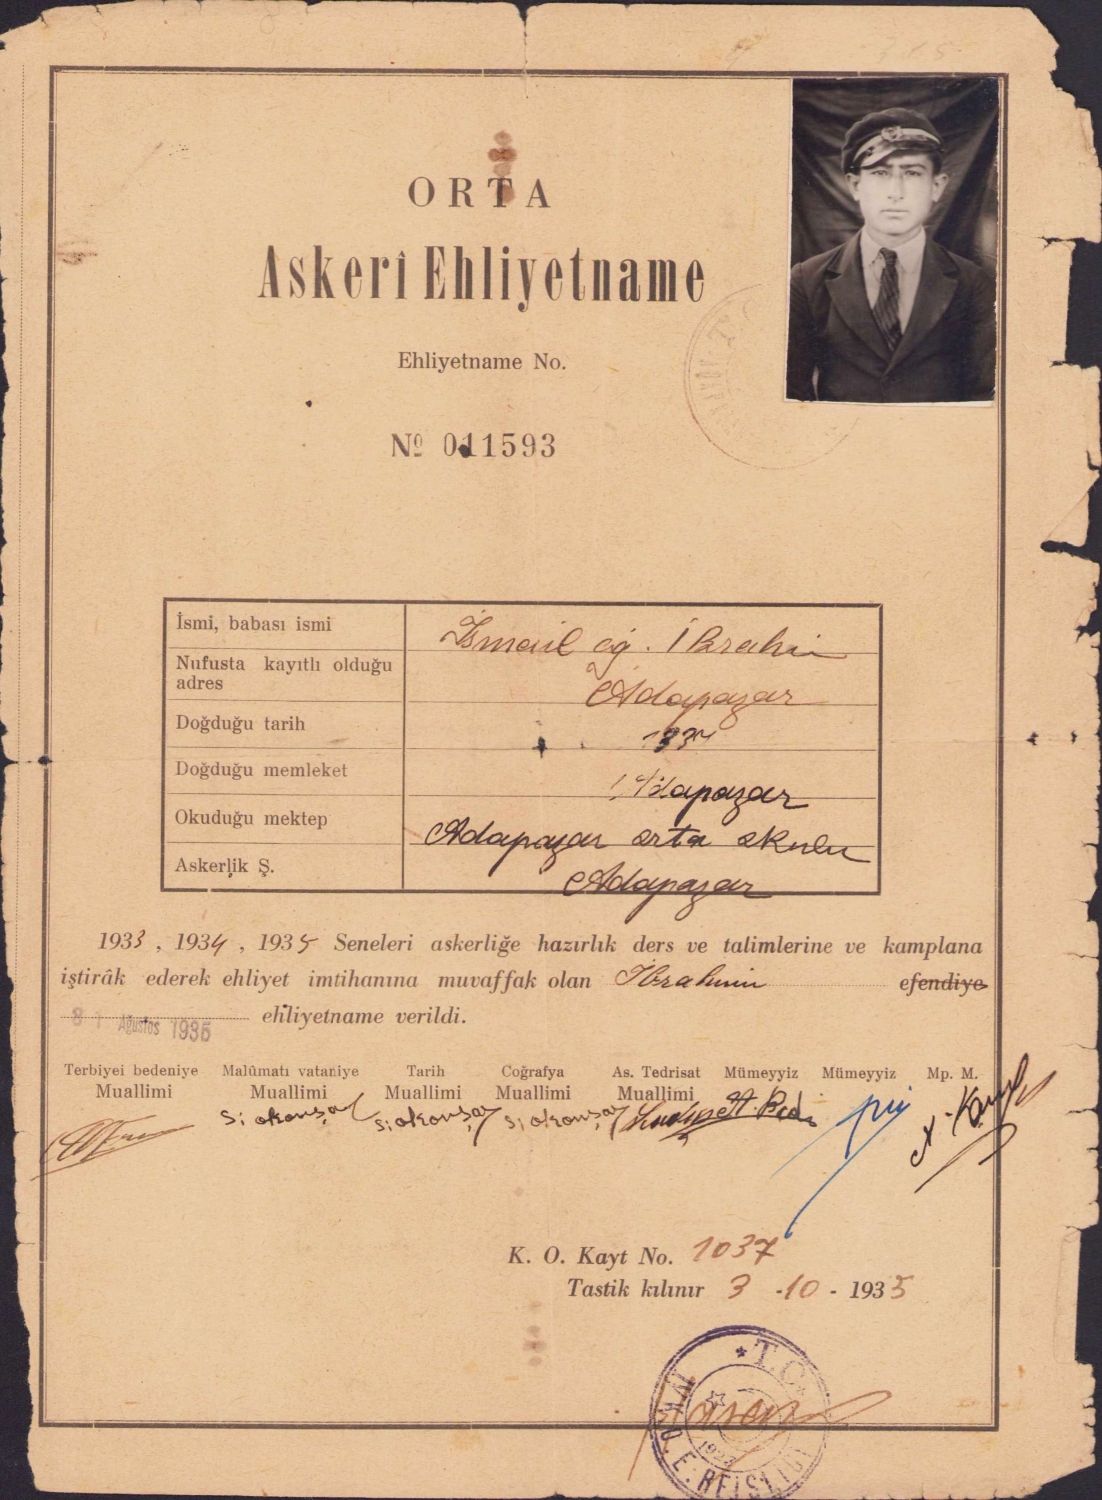 ORTA
Askerî Ehliyetname
Ehliyetname No.
No 011593
İsmi, babası ismi
İsmail oğ. İbrahim
Nufusta kayıtlı olduğu
adres
Adapazar
Doğduğu tarih
Doğduğu memleket
Adapazar
Okuduğu mektep
Adapazar orta okulu
Askerlik Ş.
Adapazar
1933, 1934, 1935 Seneleri askerliğe hazırlık ders ve talimlerine ve kamplana
iştirâk ederek ehliyet imtihanına muvaffak olan İbrahim efendiye
31 Ağustos 1935 ehliyetname verildi.
Terbiyei bedeniye Malûmatı vataniye Tarih Coğrafya As. Tedrisat Mümeyyiz Mümeyyiz Mp. M.
Muallimi Muallimi Muallimi Muallimi Muallimi
K. O. Kayt No. 1037
Tastik kılınır 3 - 10 - 1935
T.C.
REİSLİĞİ